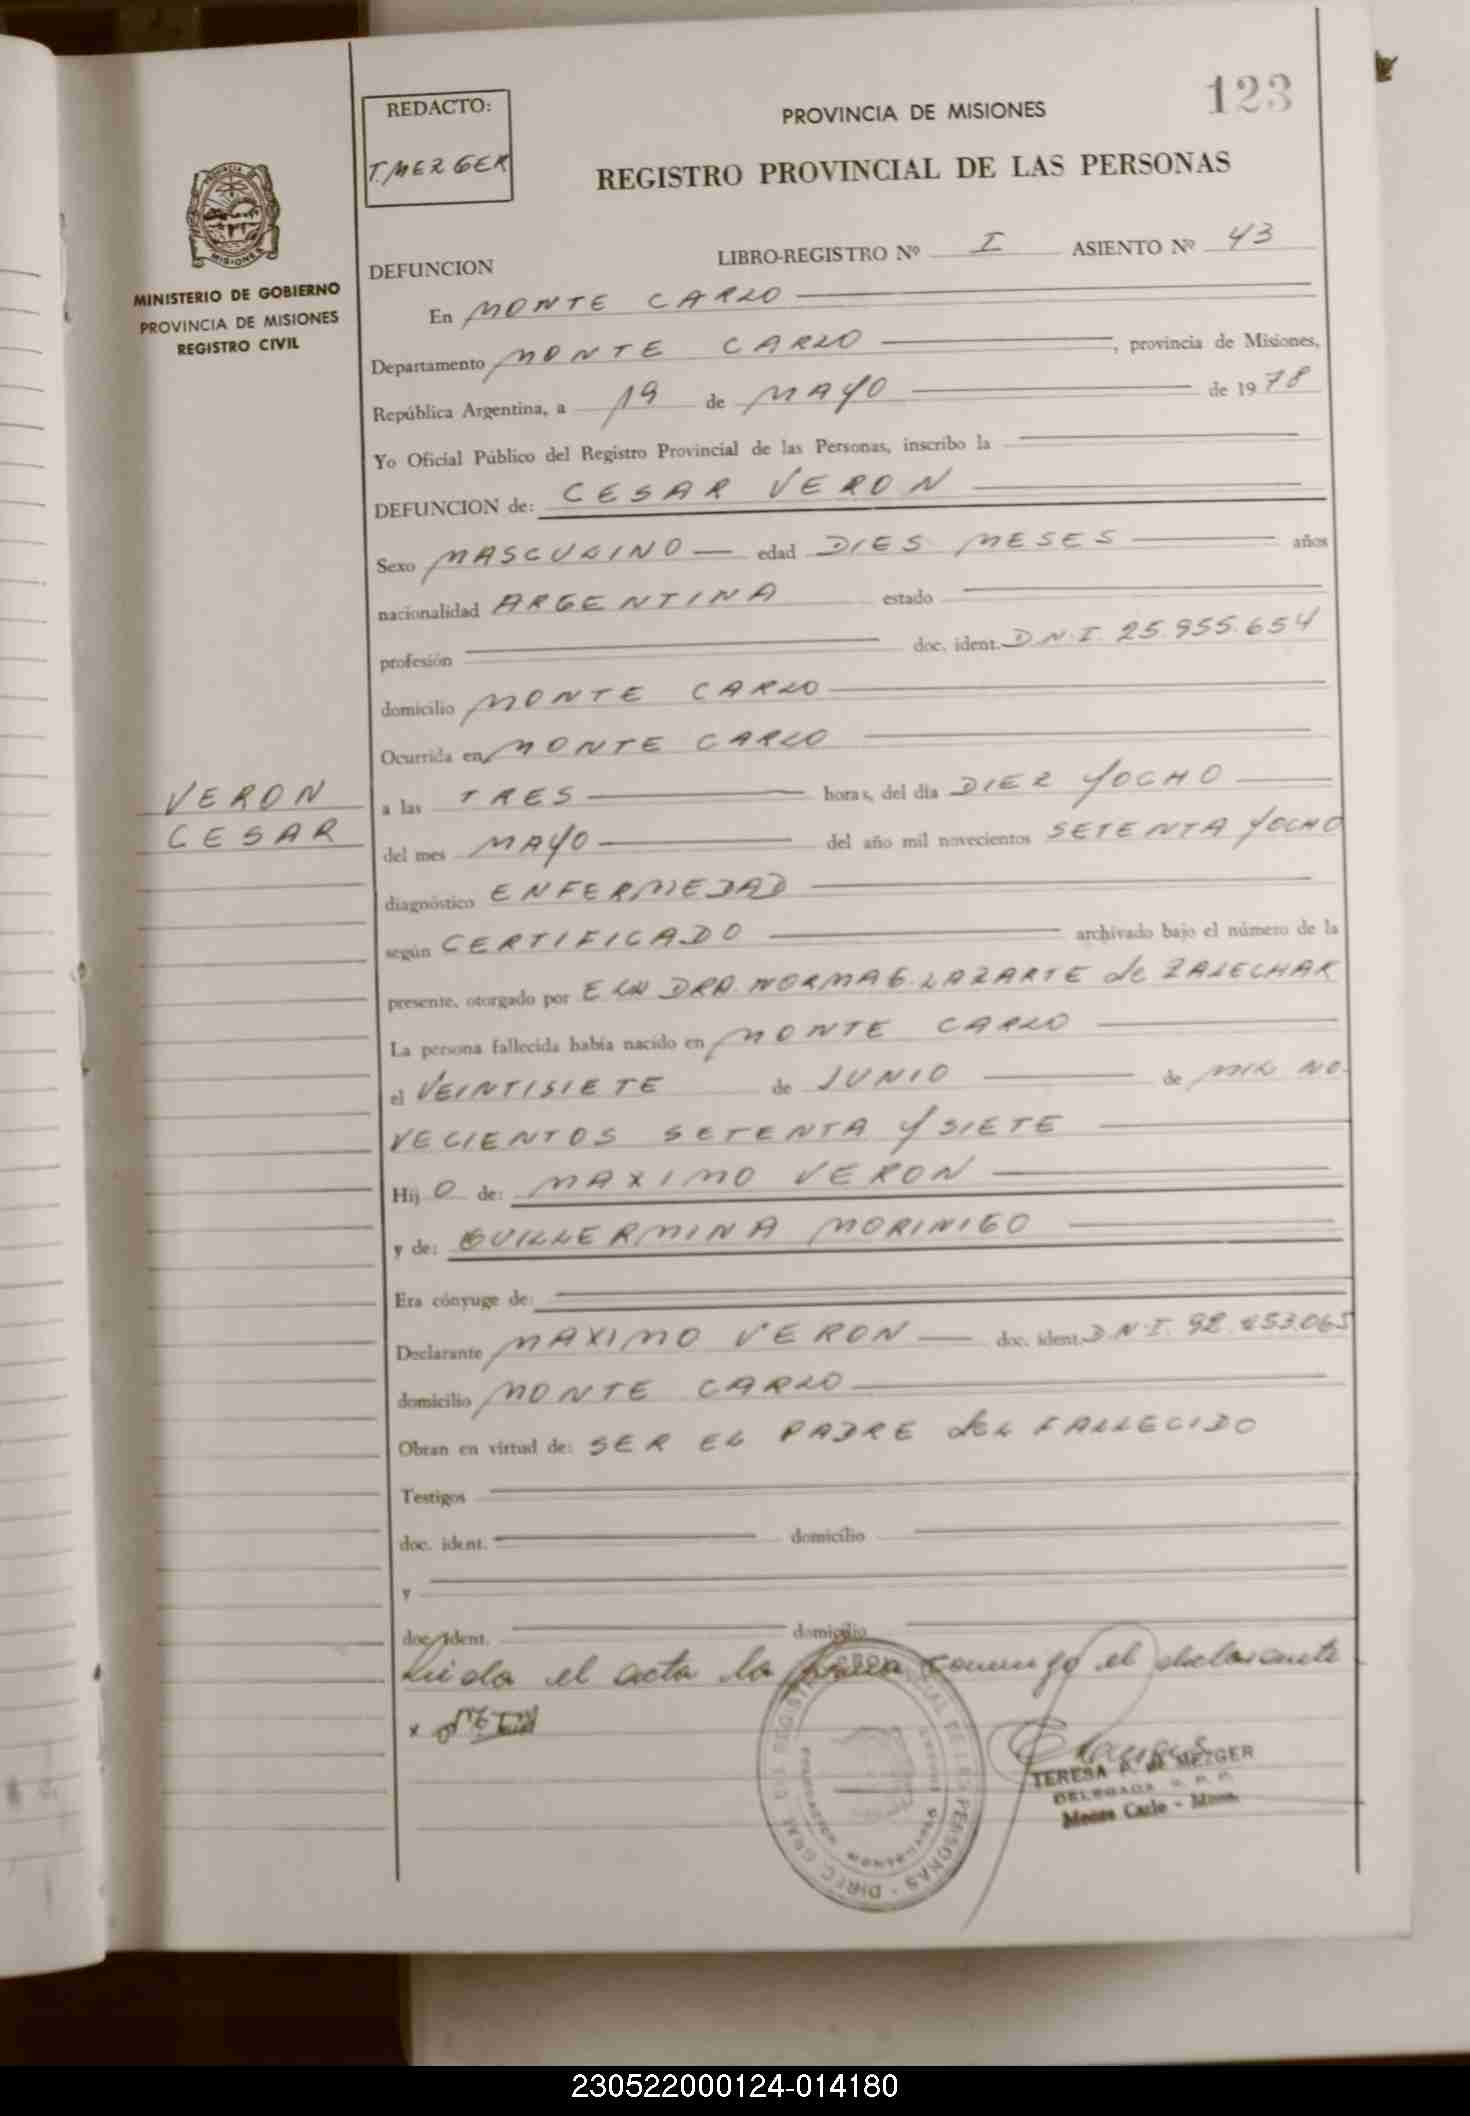 123
REDACTO:
T. MEZGER
PROVINCIA DE MISIONES
REGISTRO PROVINCIAL DE LAS PERSONAS
PROVINCIA DE
MISIONES
MINISTERIO DE GOBIERNO
PROVINCIA DE MISIONES
REGISTRO CIVIL
DEFUNCION LIBRO-REGISTRO Nº I ASIENTO Nº 43
En MONTE CARLO
Departamento MONTE CARLO, provincia de Misiones,
República Argentina, a 19 de MAYO de 1978
Yo Oficial Público del Registro Provincial de las Personas, inscribo la
DEFUNCION de: CESAR VERON
Sexo MASCULINO edad DIES MESES años
nacionalidad ARGENTINA estado
profesión doc. ident. D.N.I. 25.955.654
domicilio MONTE CARLO
Ocurrida en MONTE CARLO
VERON
CESAR
a las TRES horas, del día DIEZ YOCHO
del mes MAYO del año mil novecientos SETENTA YOCHO
diagnóstico ENFERMEDAD
según CERTIFICADO archivado bajo el número de la
presente, otorgado por DRA. NORMA G. LAZARTE de ZALECHAK
La persona fallecida había nacido en MONTE CARLO
el VEINTISIETE de JUNIO de MIL NO-
VECIENTOS SETENTA Y SIETE
Hij O de: MAXIMO VERON
y de: GUILLERMINA MORINIGO
Era cónyuge de:
Declarante MAXIMO VERON doc. ident. D.N.I. 92.253.065
domicilio MONTE CARLO
Obran en virtud de: SER EL PADRE del FALLECIDO
Testigos
doc. ident. domicilio
y
doc. ident. domicilio
Leida el acta la firma conmigo el declarante
x
TERESA P. de MEZGER
DELEGADA R. P. P.
Monte Carlo - Mnes.
230522000124-014180